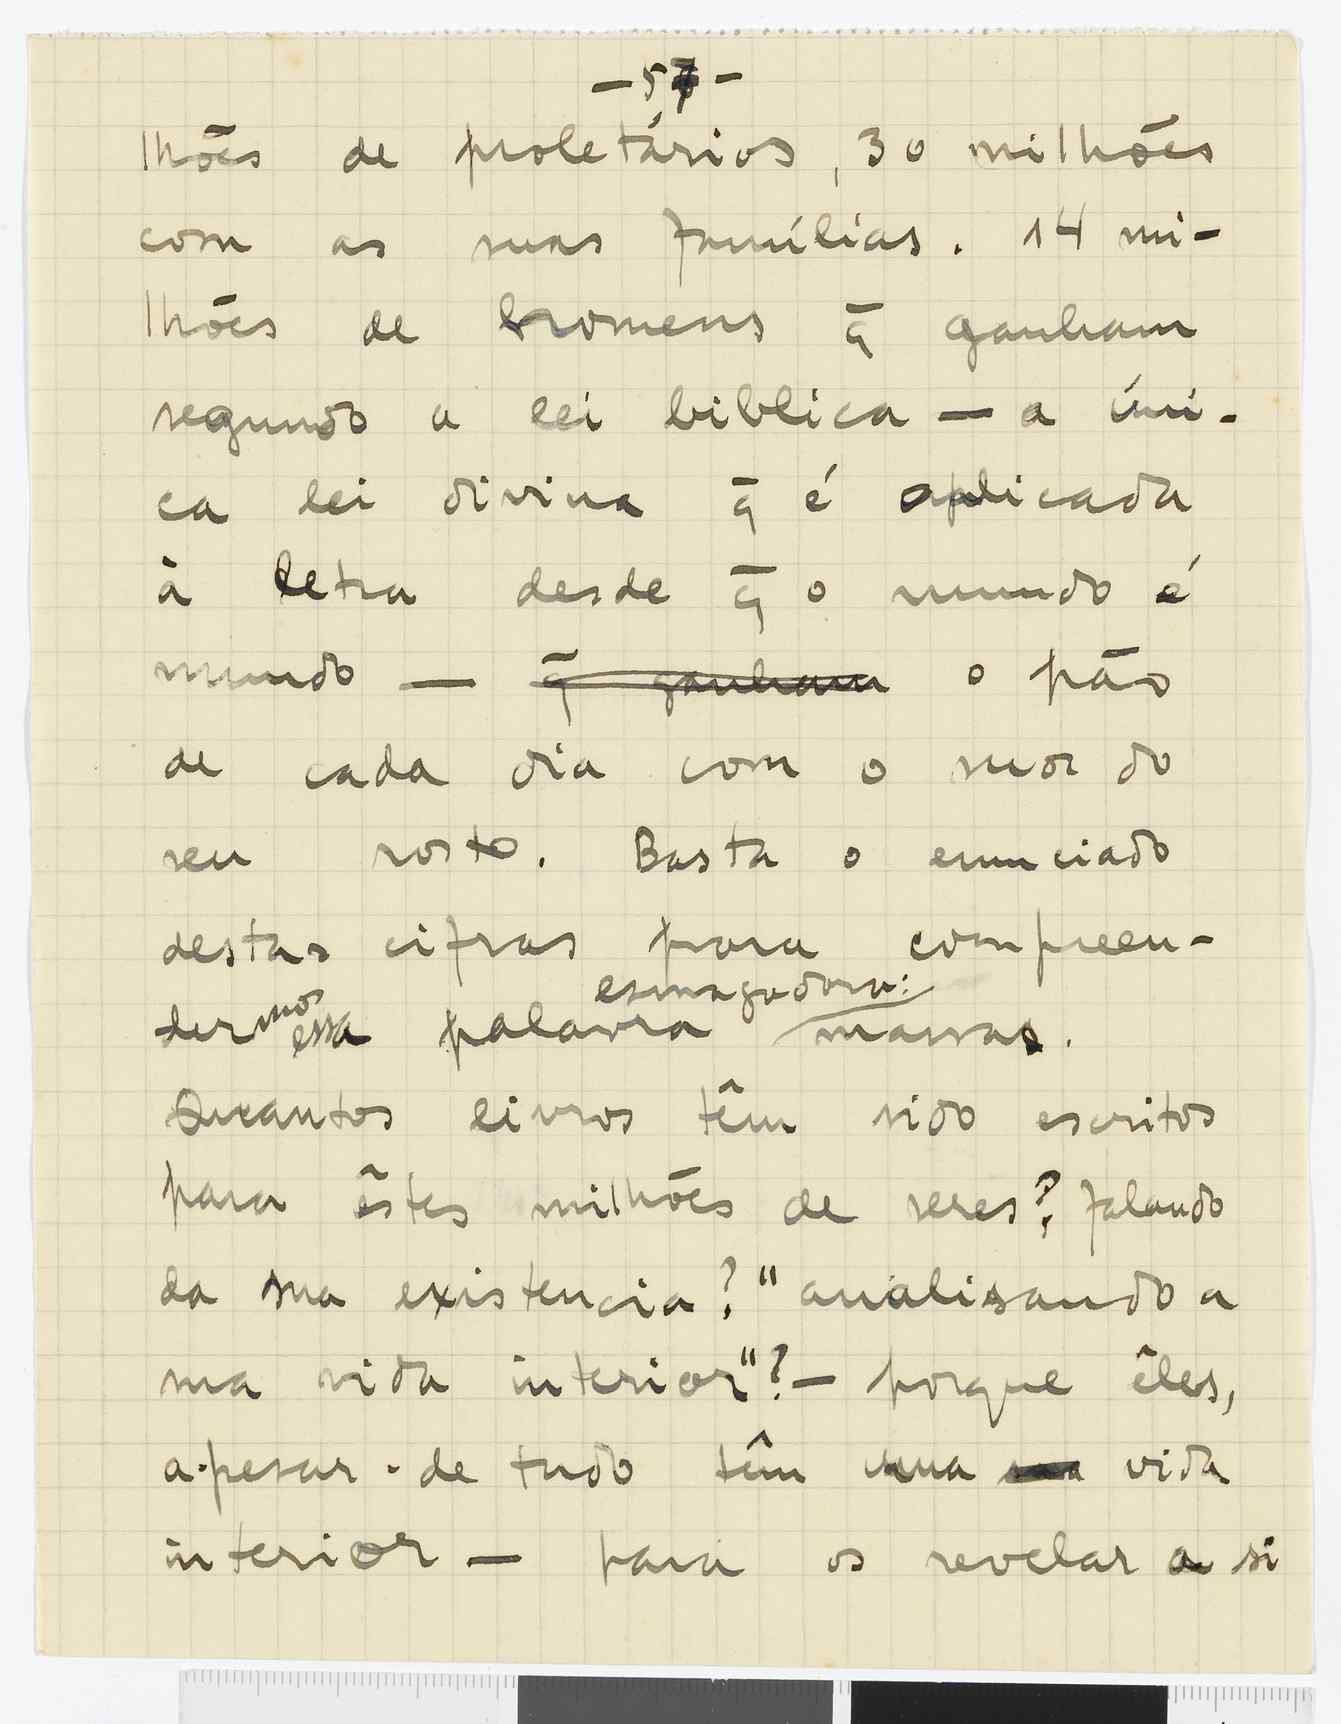 -57-
lhões de proletários, 30 milhões
com as suas famílias. 14 mi-
lhões de homens q̄ ganham
segundo a lei biblica — a úni-
ca lei divina q̄ é aplicada
à letra desde q̄ o mundo é
mundo — q̄ ganham o pão
de cada dia com o suor do
seu rosto. Basta o enunciado
destas cifras para compreen-
esmagadora:
dermos essa palavra massas.
Quantos livros têm sido escritos
para êstes milhões de seres? falando
da sua existencia? "analisando a
sua vida interior"? — porque êles,
a-pesar-de tudo têm uma vida
interior — para os revelar a si